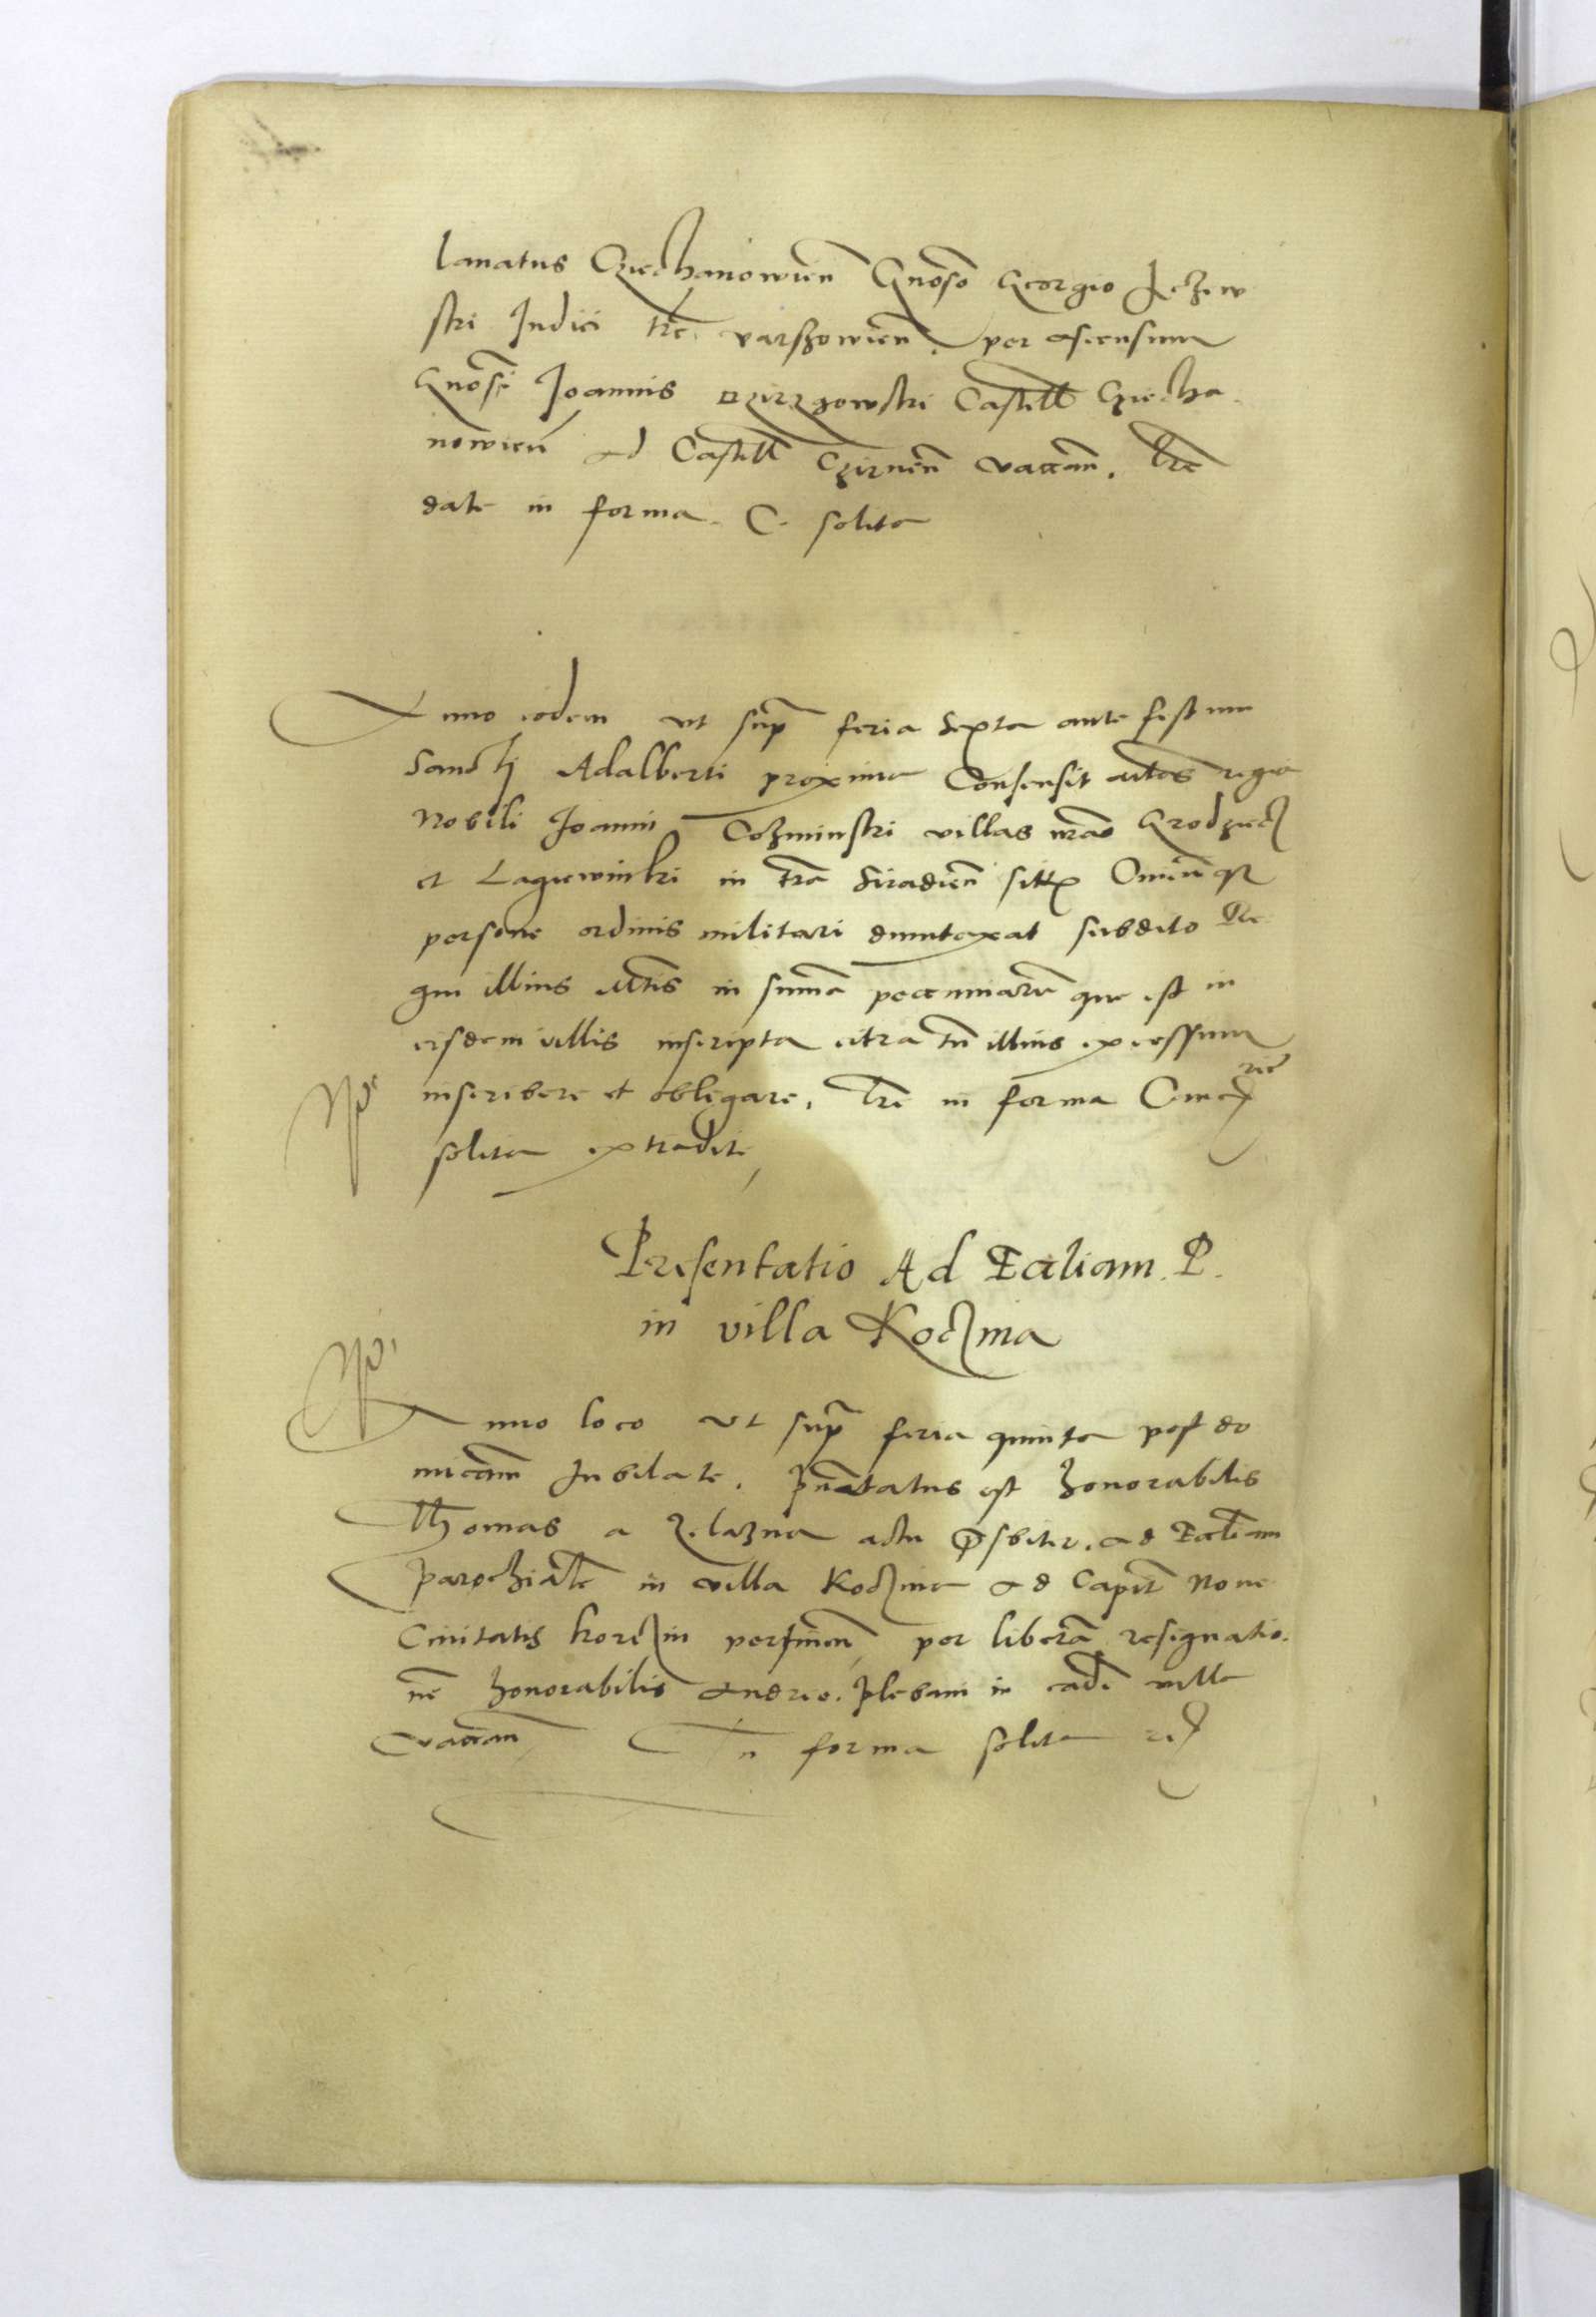 lanatus Cziechanowien̄ Gn̄oso Georgio Jezew
ski Judici tr̄e varszowien̄. per ascensum
Gn̄osi Joannis Dzierzgowski Castell̄ Cziecha
nowien̄ ad Castell̄ Czirnen̄ vacan̄. Lr̄e
date in forma C. solita
Anno eodem ut sup̄ feria Sexta ante festum
Sancti Adalberti proxima Consensit Mtas regia
Nobili Joanni Cozminski villas Grodziecz
et Lagiewniki in tr̄a Siradien̄
persone ordinis militari duntaxat subdito Re
gni illius Mtis in sum̄a pecuniaria que est in
eisdem villis inscripta citra tn̄ illius excessum
inscribere et obligare. Lr̄e in forma Canc̄rie
solita extradite
Presentatio Ad Eccliam P.
in villa Koczina
Anno loco ut sup̄ feria quinta post do
micam Jubilate. pn̄tatus est honorabilis
Thomas a Zelazna actu Prsbiter. ad Eccliam
parochialē in villa Koczina ad Capit̄ Noue
Ciuitatis korczin pertinen̄ per liberā resignatio
nē honorabilis Andree. plebani in eadē villa
vacan̄ In forma solita